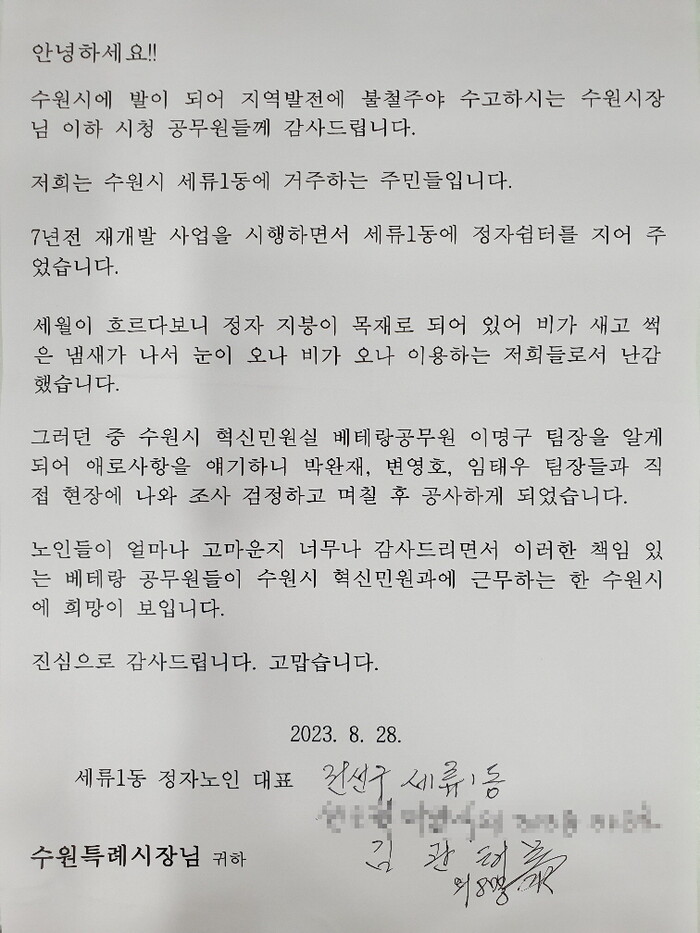 안녕하세요!!
수원시에 발이 되어 지역발전에 불철주야 수고하시는 수원시장
님 이하 시청 공무원들께 감사드립니다.
저희는 수원시 세류1동에 거주하는 주민들입니다.
7년전 재개발 사업을 시행하면서 세류1동에 정자쉼터를 지어 주
었습니다.
세월이 흐르다보니 정자 지붕이 목재로 되어 있어 비가 새고 썩
은 냄새가 나서 눈이 오나 비가 오나 이용하는 저희들로서 난감
했습니다.
그러던 중 수원시 혁신민원실 베테랑공무원 이명구 팀장을 알게
되어 애로사항을 얘기하니 박완재, 변영호, 임태우 팀장들과 직
접 현장에 나와 조사 검정하고 며칠 후 공사하게 되었습니다.
노인들이 얼마나 고마운지 너무나 감사드리면서 이러한 책임 있
는 베테랑 공무원들이 수원시 혁신민원과에 근무하는 한 수원시
에 희망이 보입니다.
진심으로 감사드립니다. 고맙습니다.
2023. 8. 28.
세류1동 정자노인 대표 권선구 세류1동
수원특례시장님 귀하 김 관
외8명